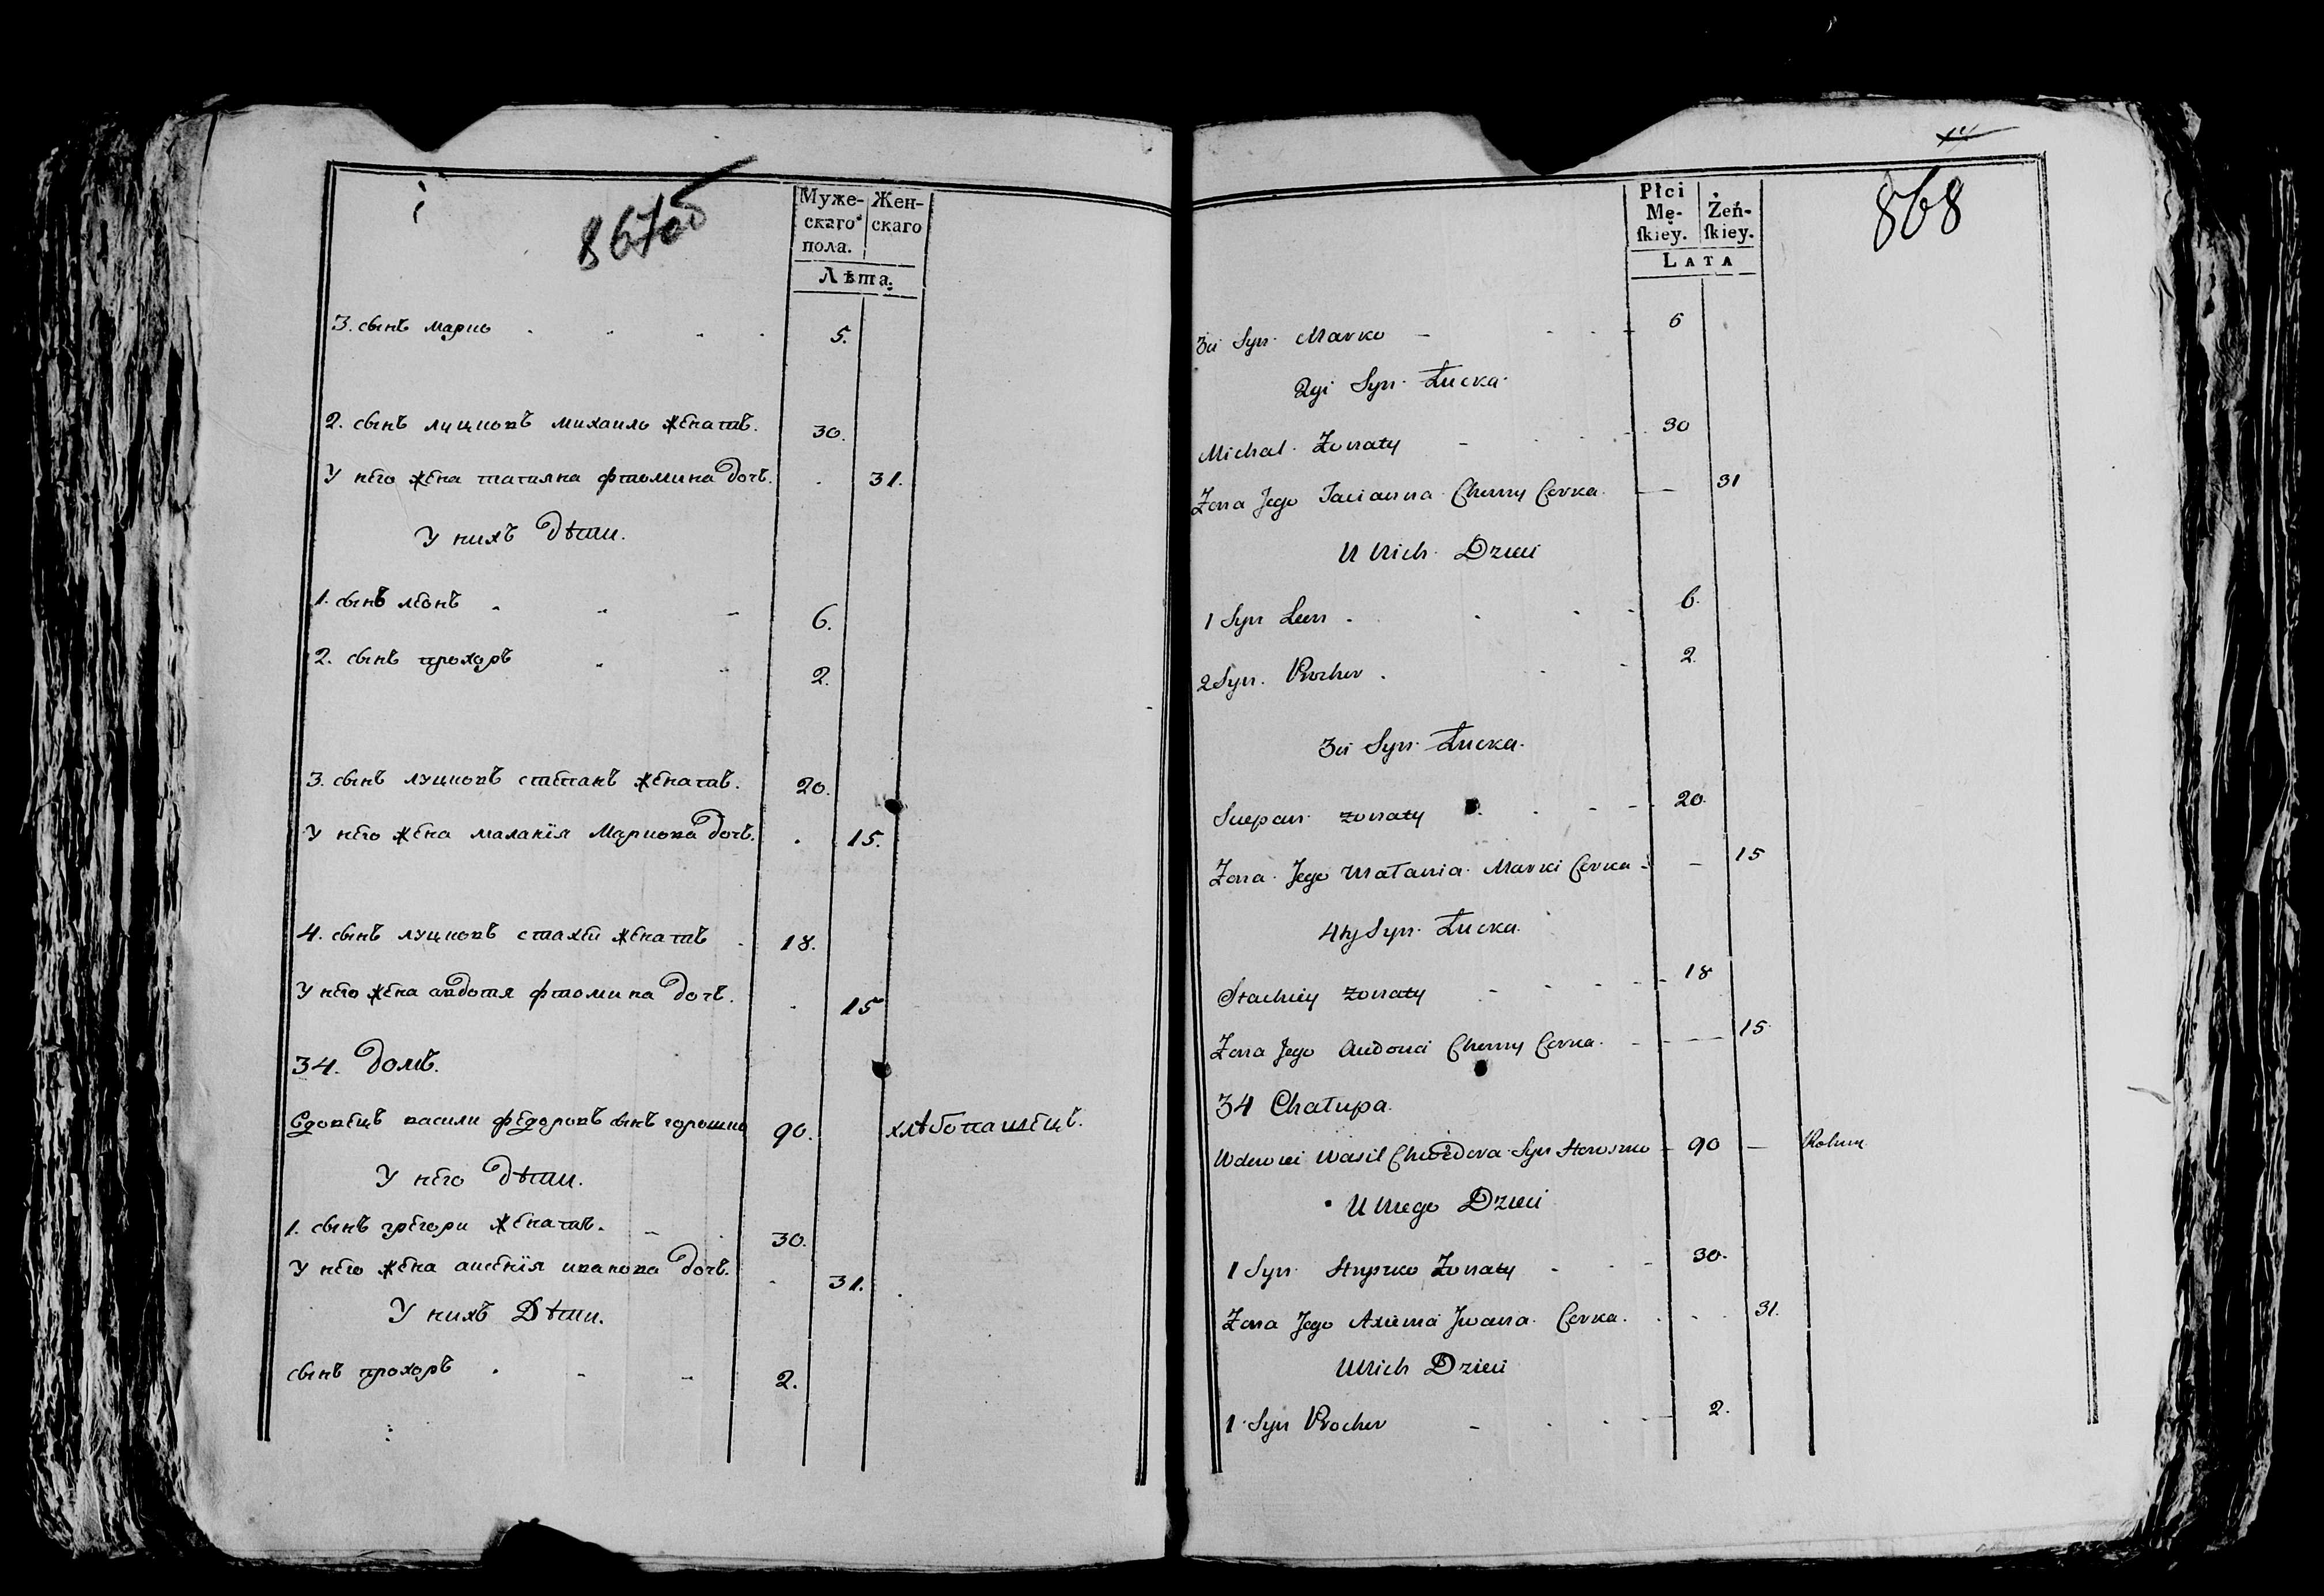 867об
Муже-
скаго
пола.
Жен-
скаго
Лѣта.
3. сынъ марко 5.
2. сынъ луцковъ михаило женатъ. 30.
У него жена татияна фтомина дочь. 31.
У нихъ Дѣти.
1. сынъ леонъ 6.
2. сынъ прохоръ 2.
3. сынъ луцковъ степанъ женатъ. 20.
У него жена маланія Маркова дочь. 15.
4. сынъ луцковъ стахеи женатъ 18.
У него жена авдотя фтомина дочь. 15
34. домъ.
вдовецъ васили федоровъ сынъ горошко 90. хлѣбопашецъ.
У него Дѣти.
1. сынъ грегори женатъ. 30.
У него жена аксенія иванова дочь. 31.
У нихъ Дѣти.
сынъ прохоръ 2.
868
Płci
Mę-
ſkiey.
Żeń-
ſkiey.
LATA
3ci Syn Marko 5
2gi Syn Łucka
Michal Żonaty 30
Żona Jego Tacianna Chomy Corka 31
U Nich Dzieci
1 Syn Leon 6.
2 Syn Prochor 2.
3ci Syn Łucka
Sciepan żonaty 20
Żona Jego Małania Marki Corka 15
4ty Syn Łucka
Stachiey żonaty 18
Żona Jego Audocia Chomy Corka 15
34 Chałupa
Wdowiec Wasil Chwedora Syn Horoszko 90 Rolnik
U Niego Dzieci
1 Syn Hryszko Żonaty 30.
Żona Jego Axienia Jwana Corka 31.
U Nich Dzieci
1 Syn Prochor 2.